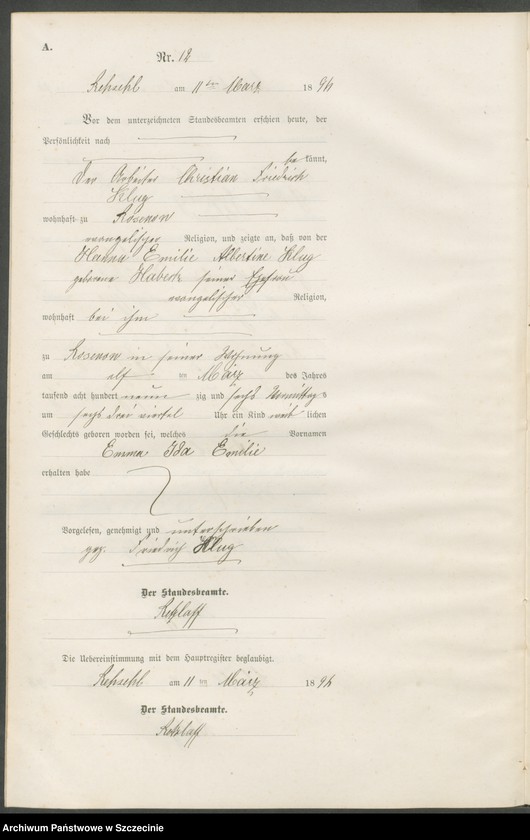 A.
Nr. 12
am 11 ten März 1896
Vor dem unterzeichneten Standesbeamten erschien heute, der
Persönlichkeit nach
be kannt,
Der Arbeiter Christian Friedrich
Klug
wohnhaft zu Rosenow
evangelischer Religion, und zeigte an, daß von der
Hanna Emilie Albertine Klug
geborene seiner Ehefrau
evangelischer Religion,
wohnhaft bei ihm
zu Rosenow in seiner Wohnung
am elf ten März des Jahres
tausend acht hundert neun zig und sechs Vormittags
um sechs drei viertel Uhr ein Kind weib lichen
Geschlechts geboren worden sei, welches die Vornamen
Emma Ida Emilie
erhalten habe
Vorgelesen, genehmigt und unterschrieben
gez. Friedrich Klug
Der Standesbeamte.
Retzlaff
Die Uebereinstimmung mit dem Hauptregister beglaubigt.
am 11 ten März 1896
Der Standesbeamte.
Retzlaff
Archiwum Państwowe w Szczecinie